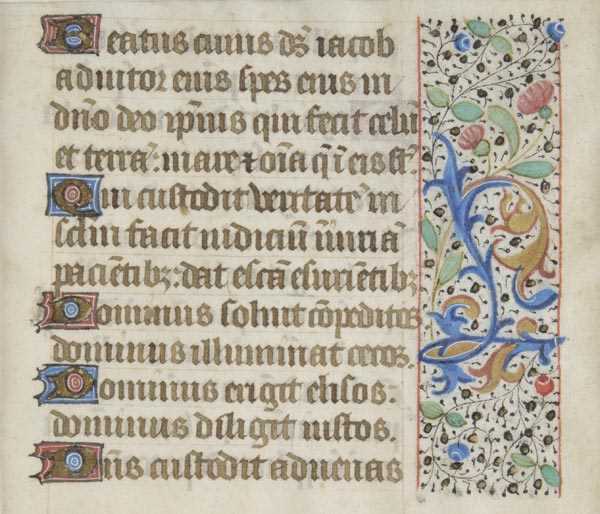 Beatus cuius ds̄ iacob
adiutor eius spes eius in
dn̄o deo ip̄ius qui fecit celū
et terrā: mare ⁊ oīa q̄ ī eis st̄.
Qui custodit veritatē in
sclm̄ facit iudiciū iniuriā
paciētibꝫ: dat escā esuriētibꝫ
Dominus soluit cōpeditos
dominus illuminat cecos.
Dominus erigit elisos:
dominus diligit iustos.
Dn̄s custodit aduenas